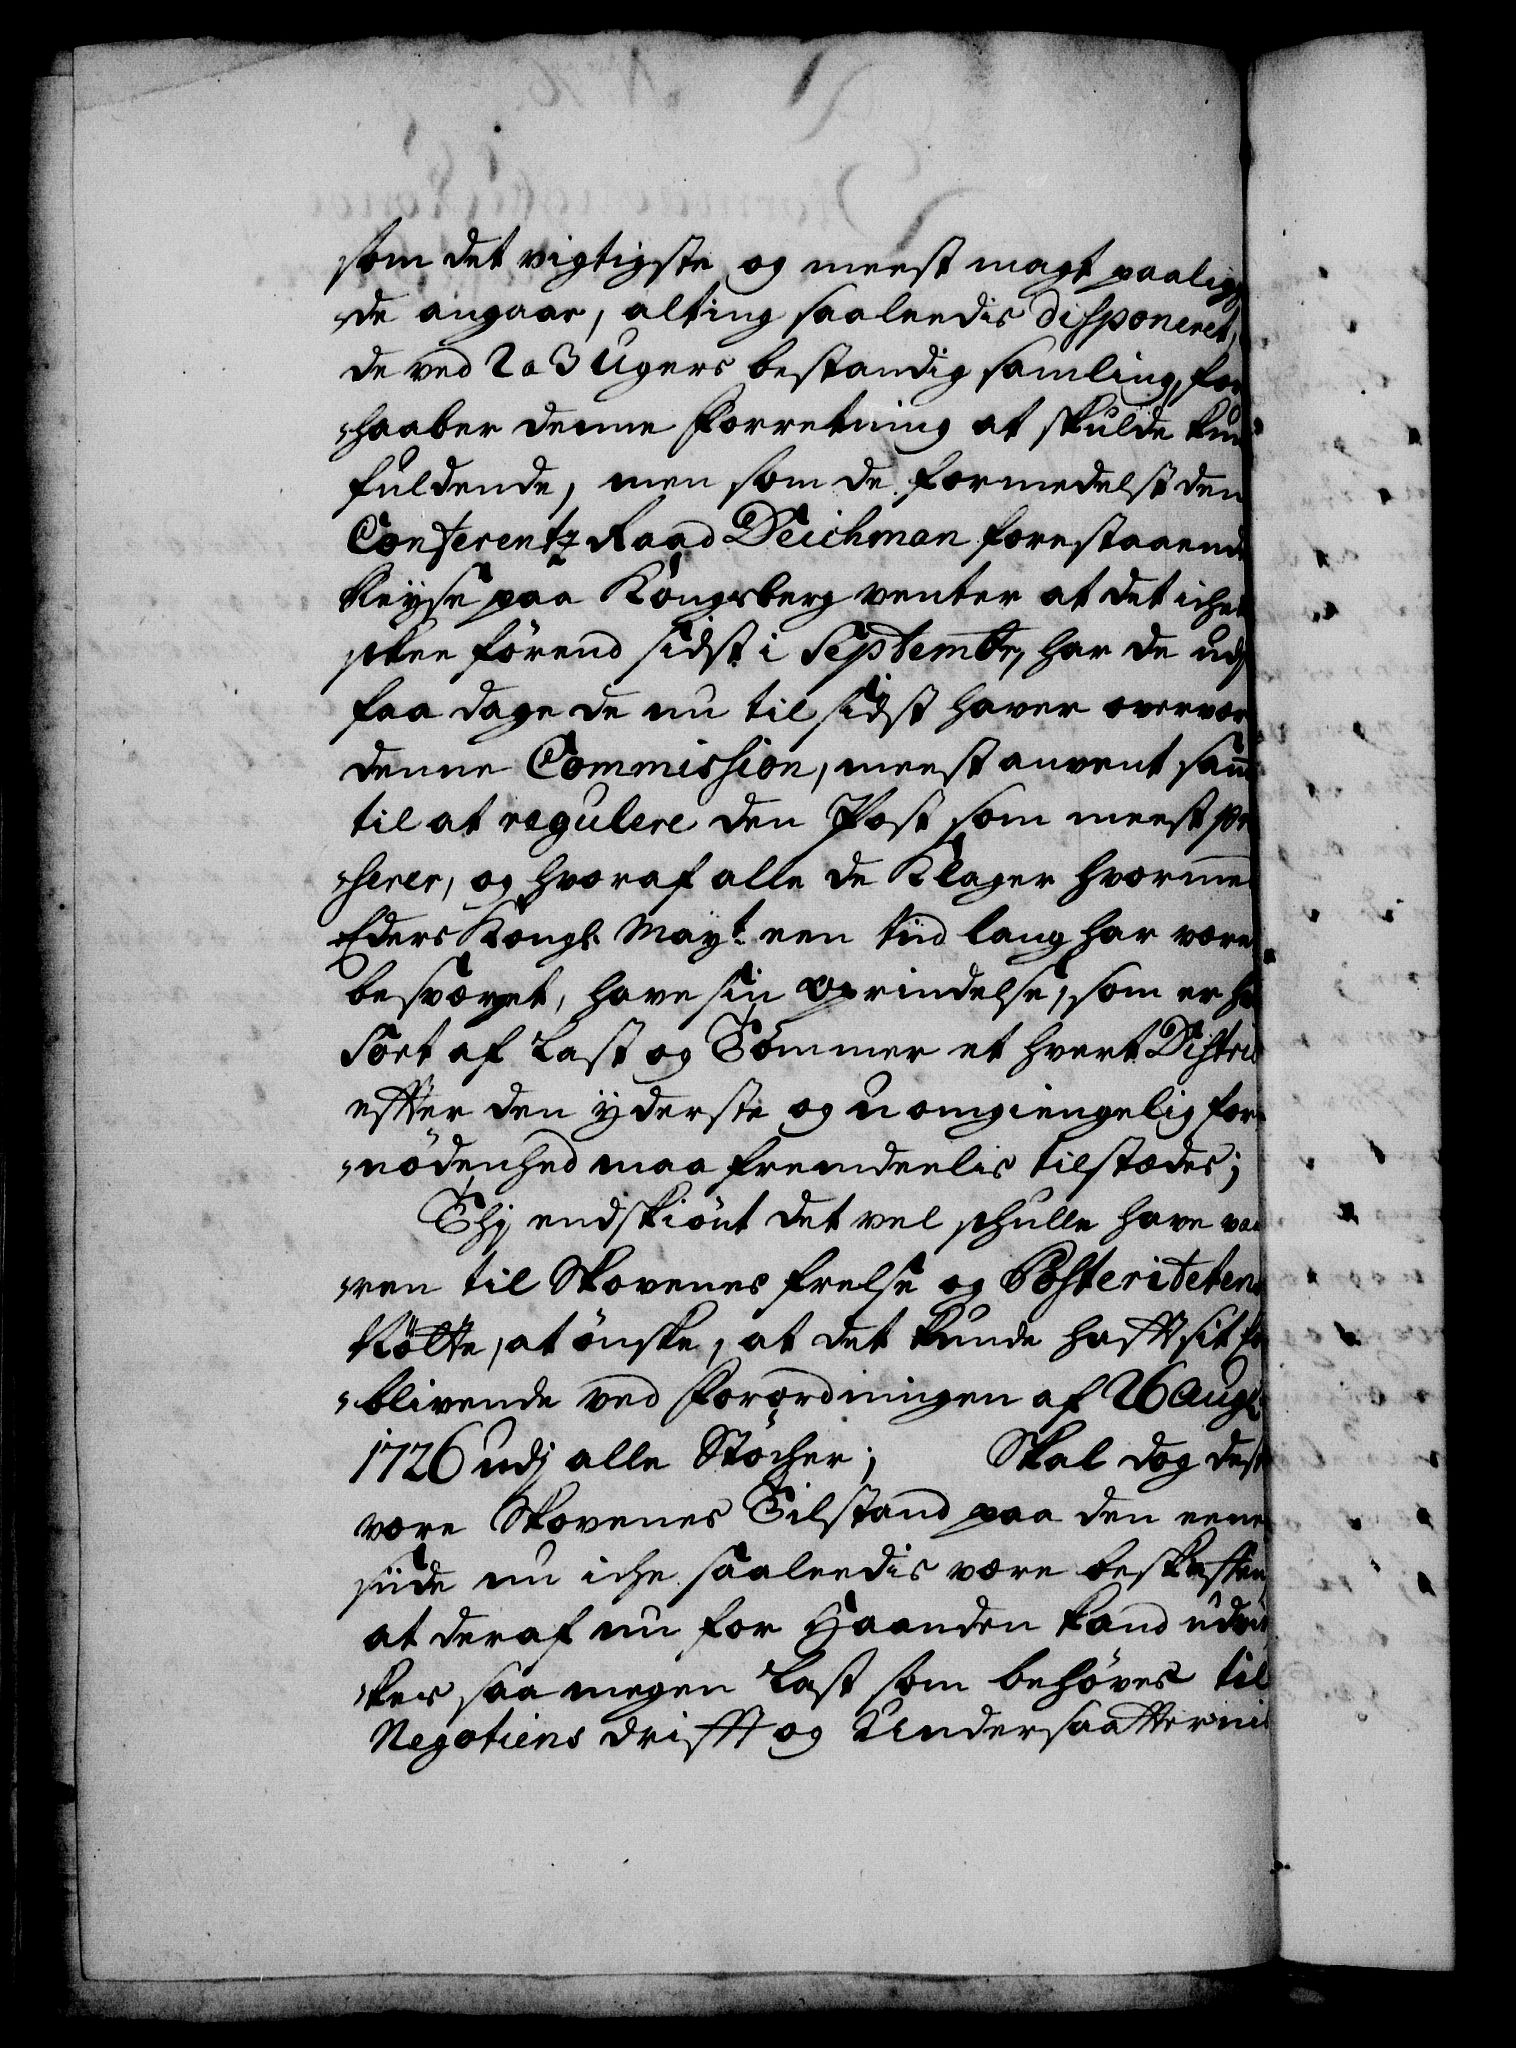 som det vigtigste og meest magt paalig
de angaar, alting saaleedis disponeret,
de ved 2 a 3 Ugers bestandig samling, for
-haaber denne Forretning at skulde kun
fuldende, men som de formedelst den
Conferentz Raad Deichman forestaaende
Reyse paa Kongsberg venter at det iche
skee förend sidst i Septembr, har de udj
faa dage de nu til sidst haver overvær
denne Commission, meest anvent sam
til at regulere den Post som meest pr
-serer, og hvoraf alle de Klager hvormed
Eders Kongl. Mayt. een tiid lang har være
besværget, have sin Oprindelse, som er hv
Sort af Last og Tömmer et hvert Distric
effter den yderste og Uomgiengelig for-
-nödenhed maa fremdeelis tilstædes;
Thj endskiönt det vel schulle have væ
-ren til Skovenes frelse og Posteritetens
Nötte, at önske, at det kunde hafft sit for
-blivende ved Forordningen af 26 Augt.
1726 udj alle Stöcher; Skal dog des
være Skovenes Tilstand paa den eene
siide nu iche saaleedis være beskaffen,
at deraf nu for Haanden kand udvir
-kes saa megen Last som behöves til
Negotiens drifft og Undersaatternis